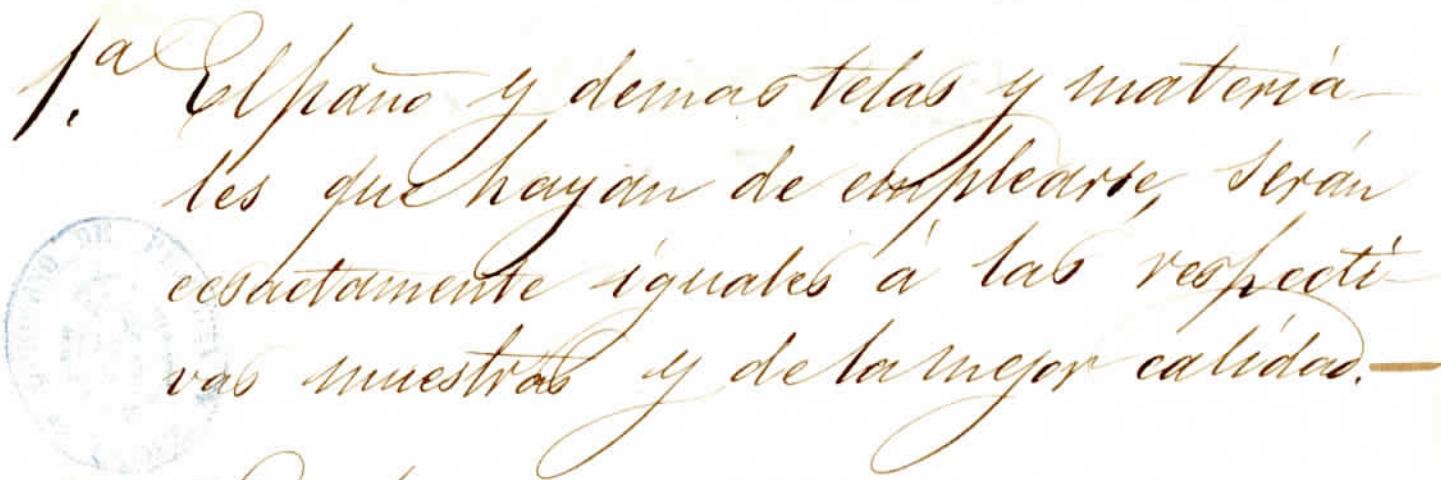 1.ª El paño y demas telas y materia-
les que hayan de emplearse, serán
ecsactamente iguales á las respecti-
vas muestras y de la mejor calidad.—
DE